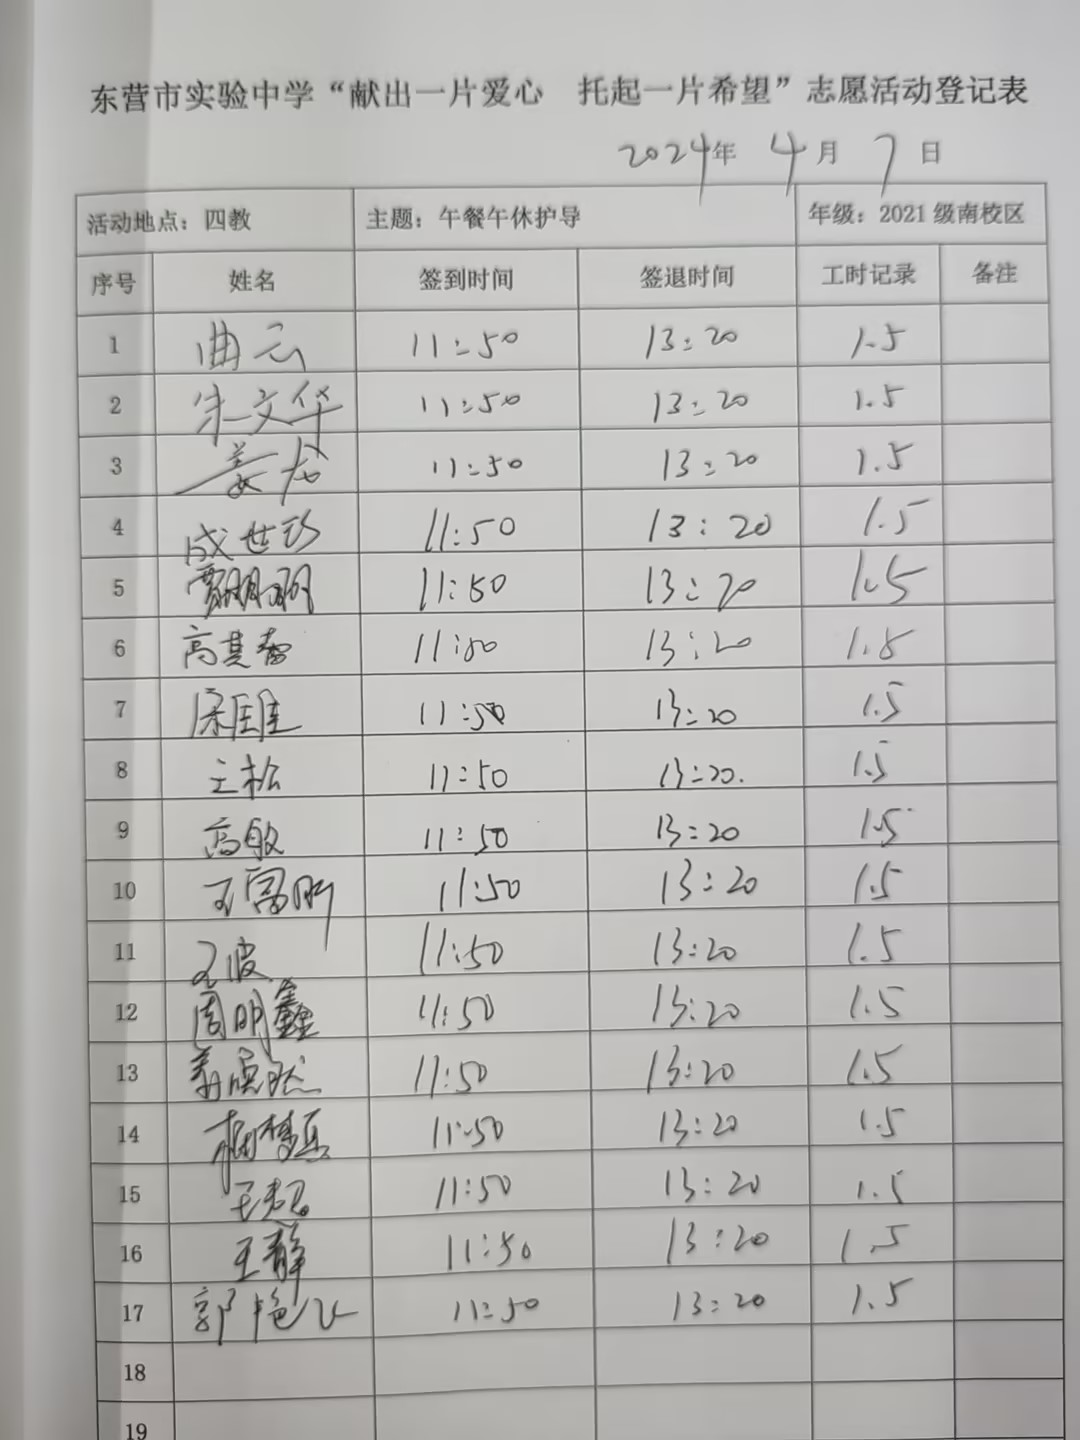 东营市实验中学“献出一片爱心 托起一片希望”志愿活动登记表
2024年 4月 7日
活动地点：四教 主题：午餐午休护导 年级：2021级南校区
序号 姓名 签到时间 签退时间 工时记录 备注
1 曲云 11:50 13:20 1.5
2 朱文华 11:50 13:20 1.5
3 姜龙 11:50 13:20 1.5
4 成世珍 11:50 13:20 1.5
5 11:50 13:20 1.5
6 高其春 11:50 13:20 1.5
7 11:50 13:20 1.5
8 王松 11:50 13:20. 1.5
9 高敏 11:50 13:20 1.5
10 11:50 13:20 1.5
11 王波 11:50 13:20 1.5
12 周明鑫 11:50 13:20 1.5
13 11:50 13:20 1.5
14 11:50 13:20 1.5
15 王超 11:50 13:20 1.5
16 王静 11:50 13:20 1.5
17 郭艳飞 11:50 13:20 1.5
18
19